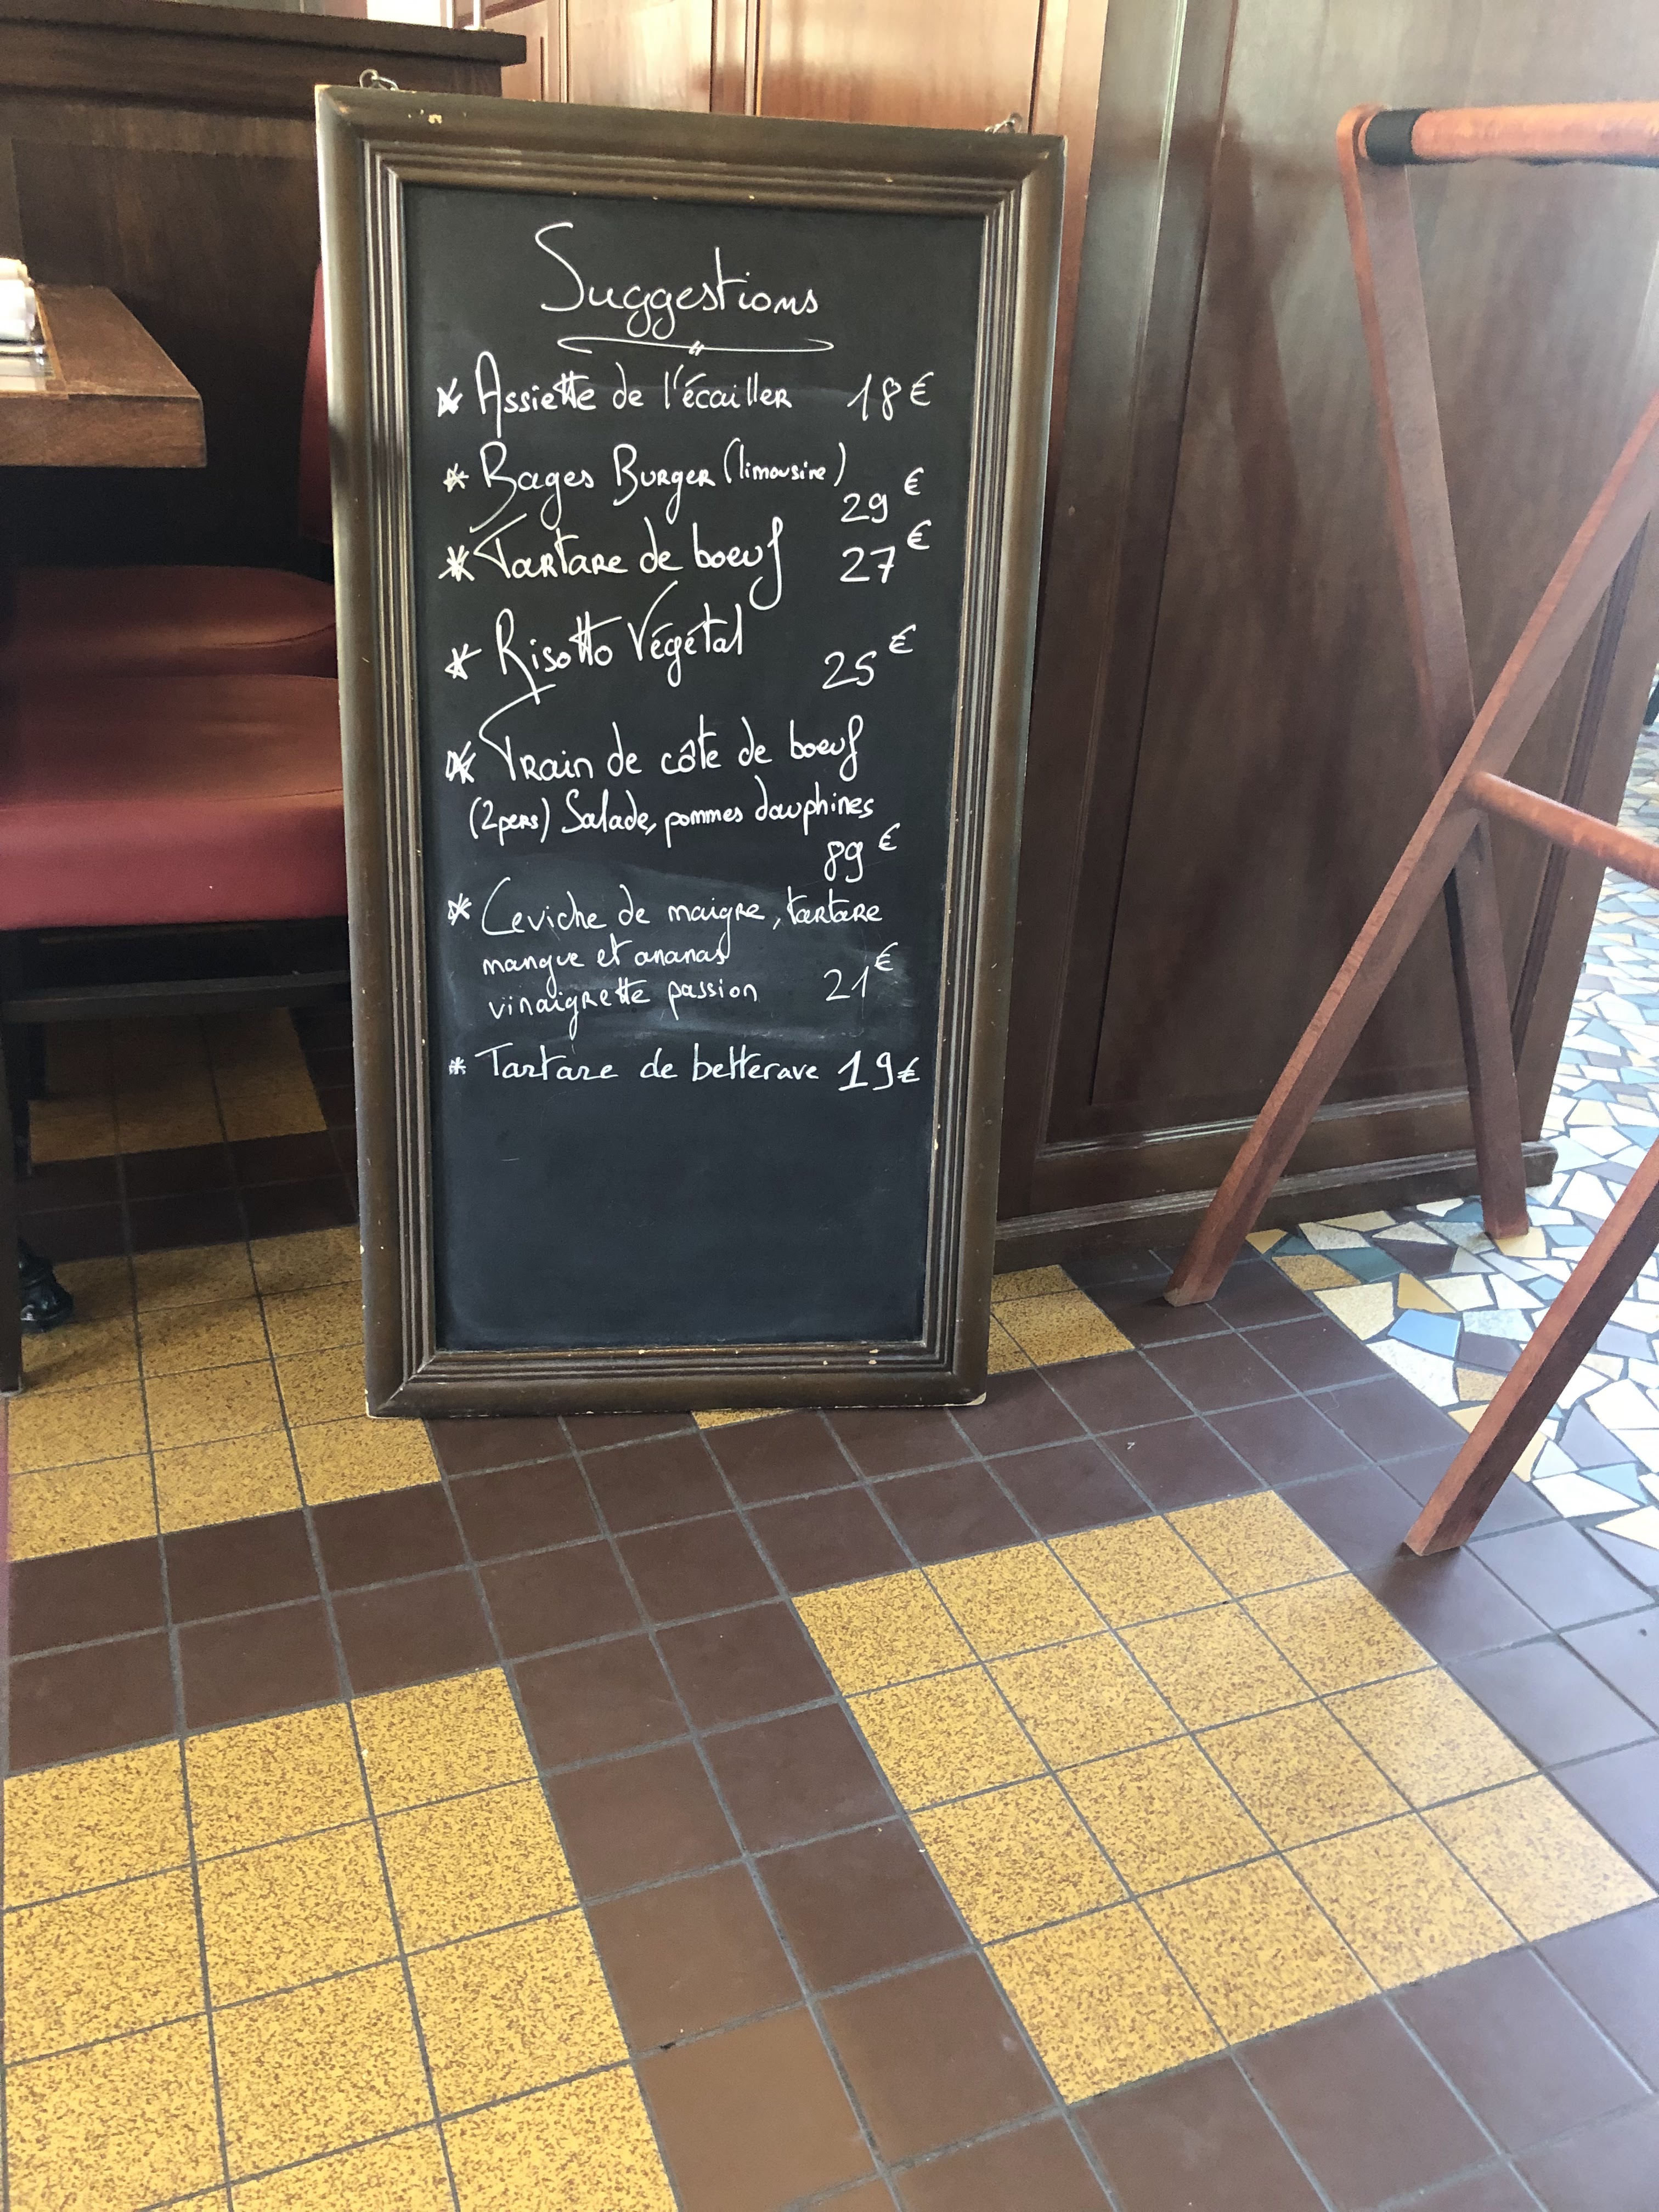 Suggestions
* Assiette de l'écailler 18€
* Bages Burger (limousine)
29€
* Tartare de boeuf 27€
* Risotto Végétal
25€
* Train de côte de boeuf
(2pers) Salade, pommes dauphines
89€
* Ceviche de maigre, tartare
mangue et ananas
vinaigrette passion 21€
* Tartare de betterave 19€